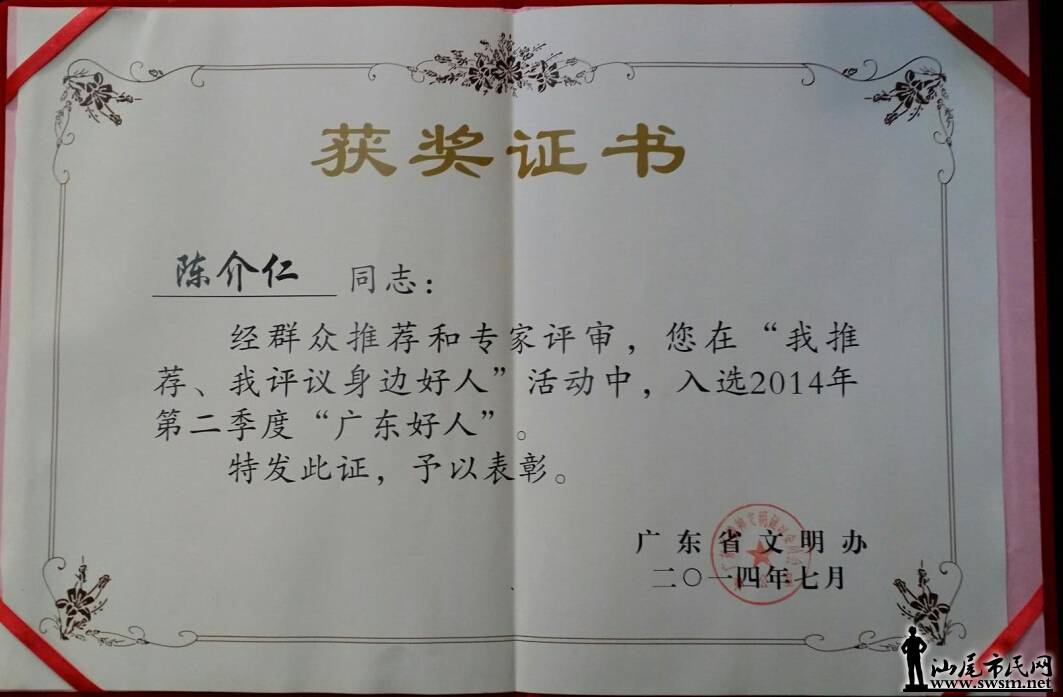 获奖证书
陈介仁 同志：
经群众推荐和专家评审，您在“我推
荐、我评议身边好人”活动中，入选2014年
第二季度“广东好人”。
特发此证，予以表彰。
广东省文明办
二〇一四年七月
汕尾市民网
www.swsm.net